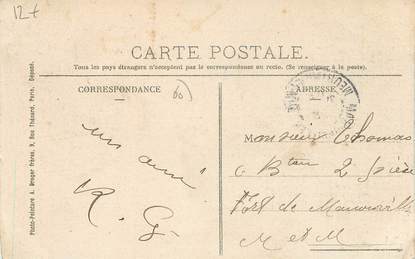 12+
CARTE POSTALE.
Tous les pays étrangers n'acceptent pas la correspondance au recto. (Se renseigner à la poste).
CORRESPONDANCE
60
ADRESSE
un ami
R. G
Monsieur Thomas
6 Bton 2 pièce
Fort de Manonviller
M et M
Photo-Peinture A. Breger frères, 9, Rue Thénard, Paris. Déposé.